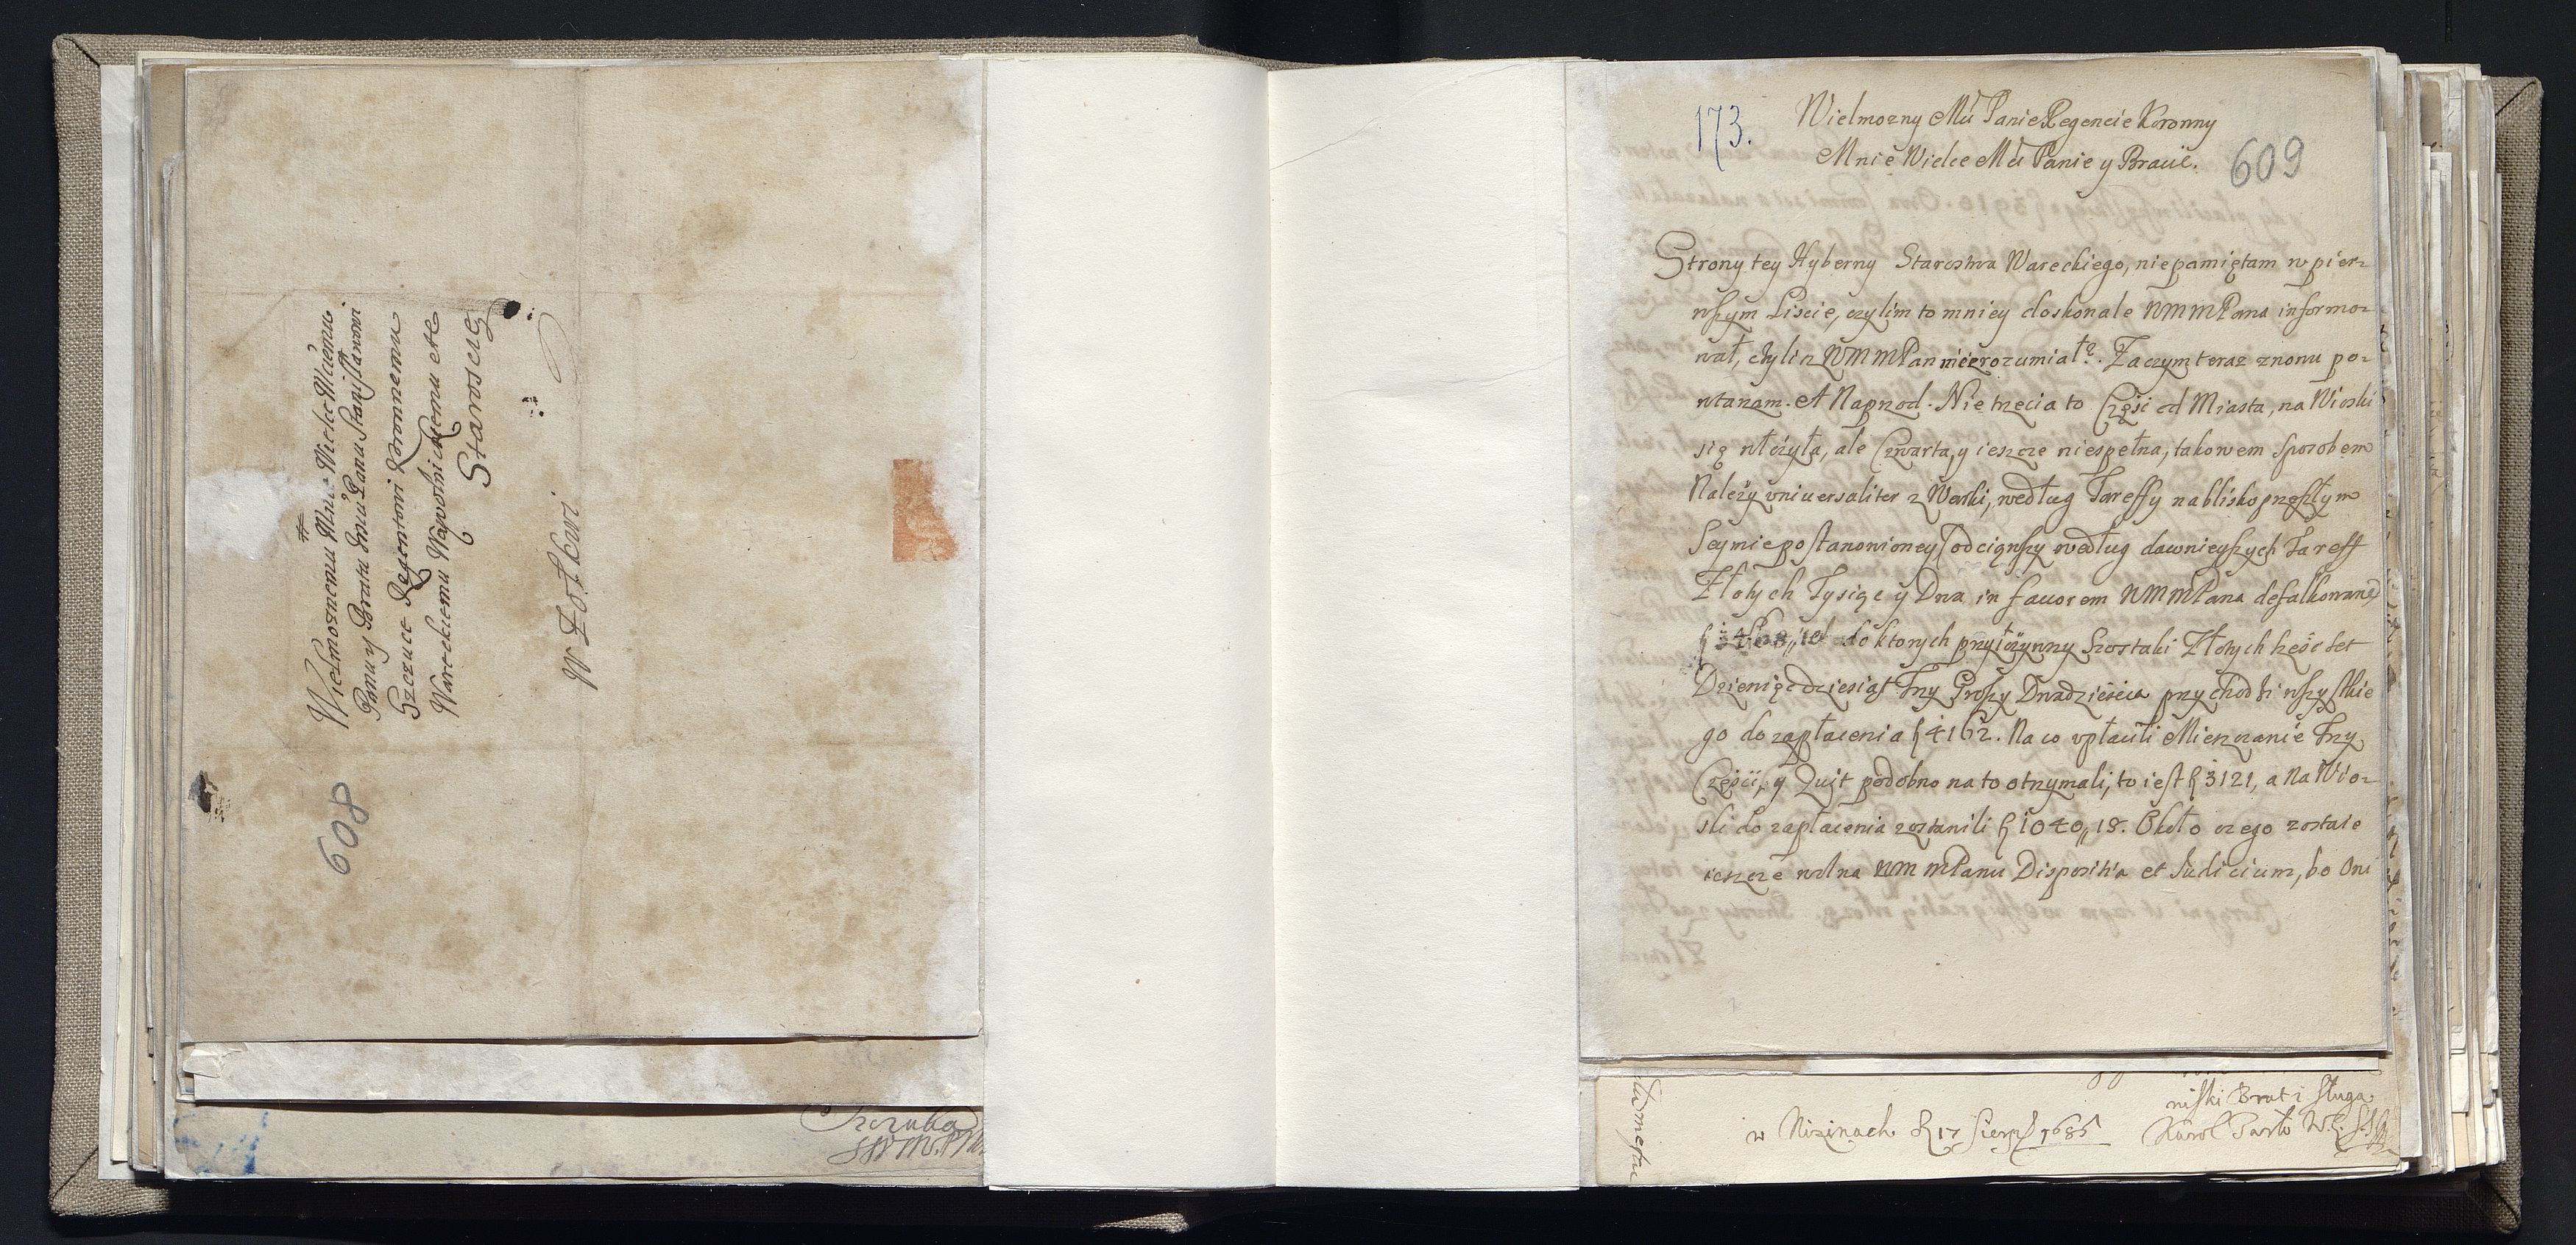 Wielmoznemu Mnie Wielce Mciemu
Panu y Bratu Jmci Panu Stanisławowi
Szczuce Regentowi Koronnemu
Wareckiemu Wąwolnickiemu etc
Staroscie
W Zołkwi
608
Szczuka
173.
Wielmozny Mci Panie Regencie Koronny
Mnie Wielce Mci Panie y Bracie.
609
Strony tey Hyberny Starostwa Wareckiego, niepamiętam w pier=
wszym Liscie, czylim to mniey doskonale WMMPana informo=
wał, czyli z WMMPan niezrozumiał?. Zaczym teraz znowu po=
wtarzam. A Naprzod. Nie trzecia to Częśc od Miasta, na Wioski
się włożyła, ale Czwarta, y ieszcze niespełna, takowem sposobem
Należy vniuersaliter z Warki, według Tareffy nablisko przeszłym
Seymie postanowioney (odciąwszy według dawnieyszych Tareff
Złotych Tysiąc y Dwa in fauorem WMMPana defalkowane)
do ktorych przyłożywszy Szostaki Złotych sześc set
Dziewięcdziesiąt Trzy Groszy Dwadziescia przychodzi wszystkie
go do zapłacenia f 4162. Na co vpłacili Mieszczanie Trzy
Częsci, y Quit podobno na to otrzymali, to iest f 3121, a Na Wio=
ski do zapłacenia zostawili f 1040,, 18. Około czego zostaie
ieszcze wolna WMMPanu Dispositia et Iudicium, bo Oni
niski Brat i Sługa
w Nizinach d 17 Sierp 1685
Karol Tarło